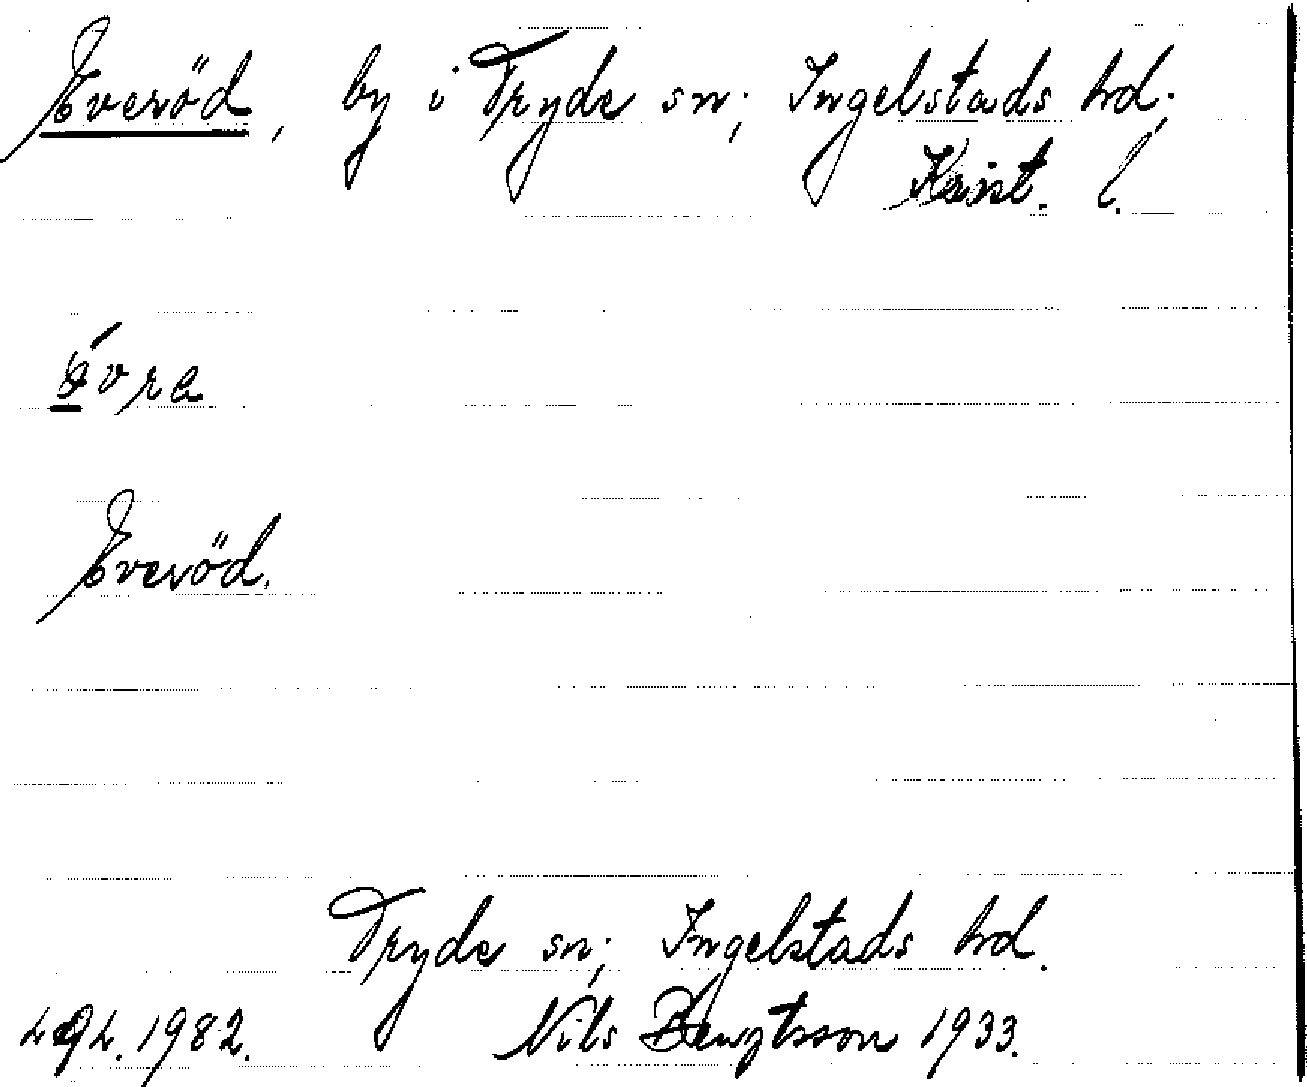 Everöd, by i Tryde sn; Ingelstads hd;
Krist. l.
Everöd.
Tryde sn; Ingelstads hd.
1982. Nils Bengtsson 1933.